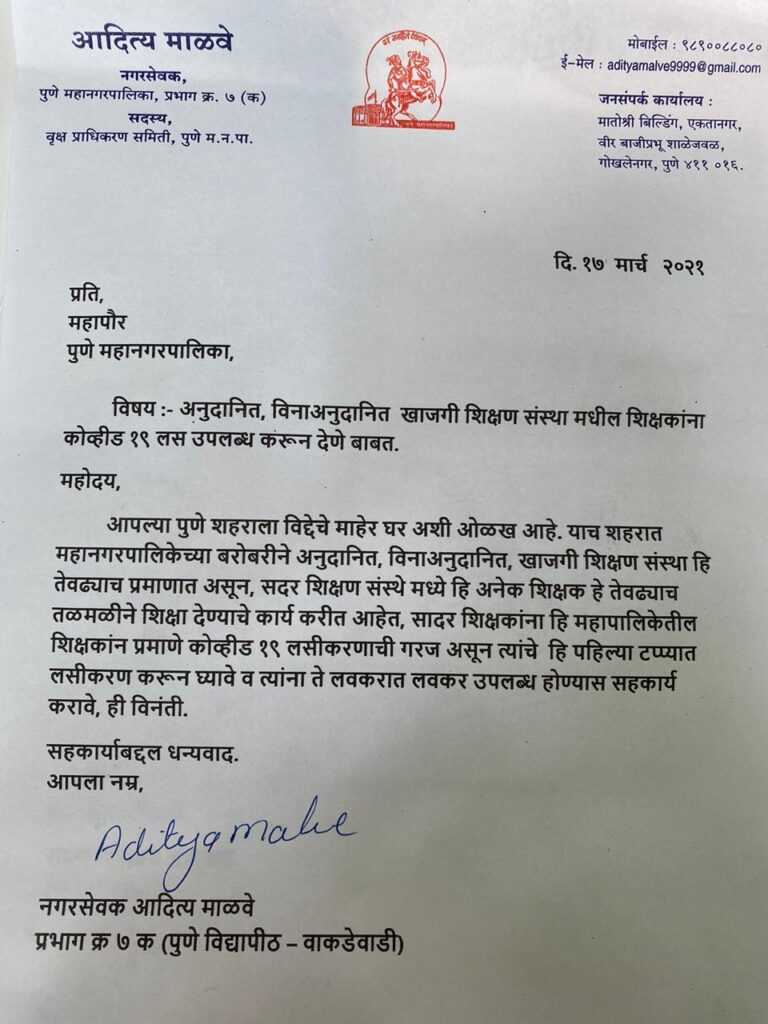 आदित्य माळवे
नगरसेवक,
पुणे महानगरपालिका, प्रभाग क्र. ७ (क)
सदस्य,
वृक्ष प्राधिकरण समिती, पुणे म.न.पा.
पुणे महानगरपालिका
मोबाईल : ९८९००८८०८०
ई-मेल : adityamalve9999@gmail.com
जनसंपर्क कार्यालय :
मातोश्री बिल्डिंग, एकतानगर,
वीर बाजीप्रभू शाळेजवळ,
गोखलेनगर, पुणे ४११ ०१६.
दि. १७ मार्च २०२१
प्रति,
महापौर
पुणे महानगरपालिका,
विषय :- अनुदानित, विनाअनुदानित खाजगी शिक्षण संस्था मधील शिक्षकांना
कोव्हीड १९ लस उपलब्ध करून देणे बाबत.
महोदय,
आपल्या पुणे शहराला विद्देचे माहेर घर अशी ओळख आहे. याच शहरात
महानगरपालिकेच्या बरोबरीने अनुदानित, विनाअनुदानित, खाजगी शिक्षण संस्था हि
तेवढ्याच प्रमाणात असून, सदर शिक्षण संस्थे मध्ये हि अनेक शिक्षक हे तेवढ्याच
तळमळीने शिक्षा देण्याचे कार्य करीत आहेत, सादर शिक्षकांना हि महापालिकेतील
शिक्षकांन प्रमाणे कोव्हीड १९ लसीकरणाची गरज असून त्यांचे हि पहिल्या टप्प्यात
लसीकरण करून घ्यावे व त्यांना ते लवकरात लवकर उपलब्ध होण्यास सहकार्य
करावे, ही विनंती.
सहकार्याबद्दल धन्यवाद.
आपला नम्र,
Aditya Malve
नगरसेवक आदित्य माळवे
प्रभाग क्र ७ क (पुणे विद्यापीठ – वाकडेवाडी)